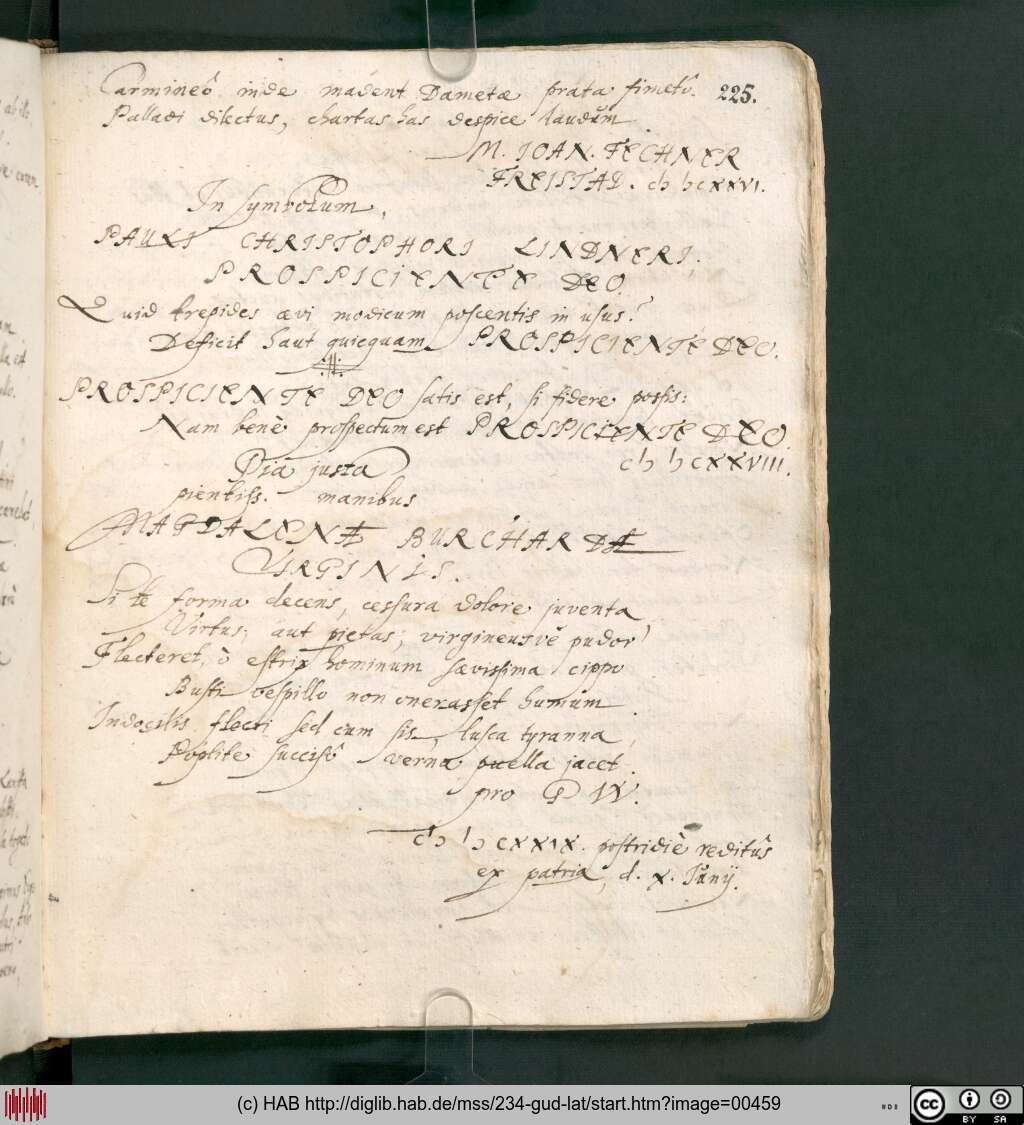 Carmineô inde madent Dametæ prata fimetô. 225.
Palladi dilectus, chartas has despice laudûm.
M. IOAN. FECHNER
FREISTAD. cIɔ Iɔ CXXVI.
In symbolum,
PAULI CHRISTOPHORI LINDNERI.
PROSPICIENTE DEO.
Quid trepides ævi modicum poscentis in usus?
Deficit haut quicquam PROSPICIENTE DEO.
PROSPICIENTE DEO satis est, si fidere possis:
Nam benè prospectum est PROSPICIENTE DEO.
cIɔ Iɔ CXXVIII.
Pia justa
pientiss. manibus
MAGDALENÆ BURCHARDÆ
VIRGINIS.
Si te forma decens, cessura dolore juventa,
Virtus, aut pietas, virgineusvè pudor
Flecteret, ò estrix hominum sævissima cippo
Busti vespillo non onerasset humum.
Indocilis flecti sed cum sis, lusca tyranna,
Poplite succisô verna puella jacet.
pro P W.
cIɔ Iɔ CXXIX. postridiè reditûs
ex patria, d. X. Iunij.
(c) HAB http://diglib.hab.de/mss/234-gud-lat/start.htm?image=00459
cc BY SA